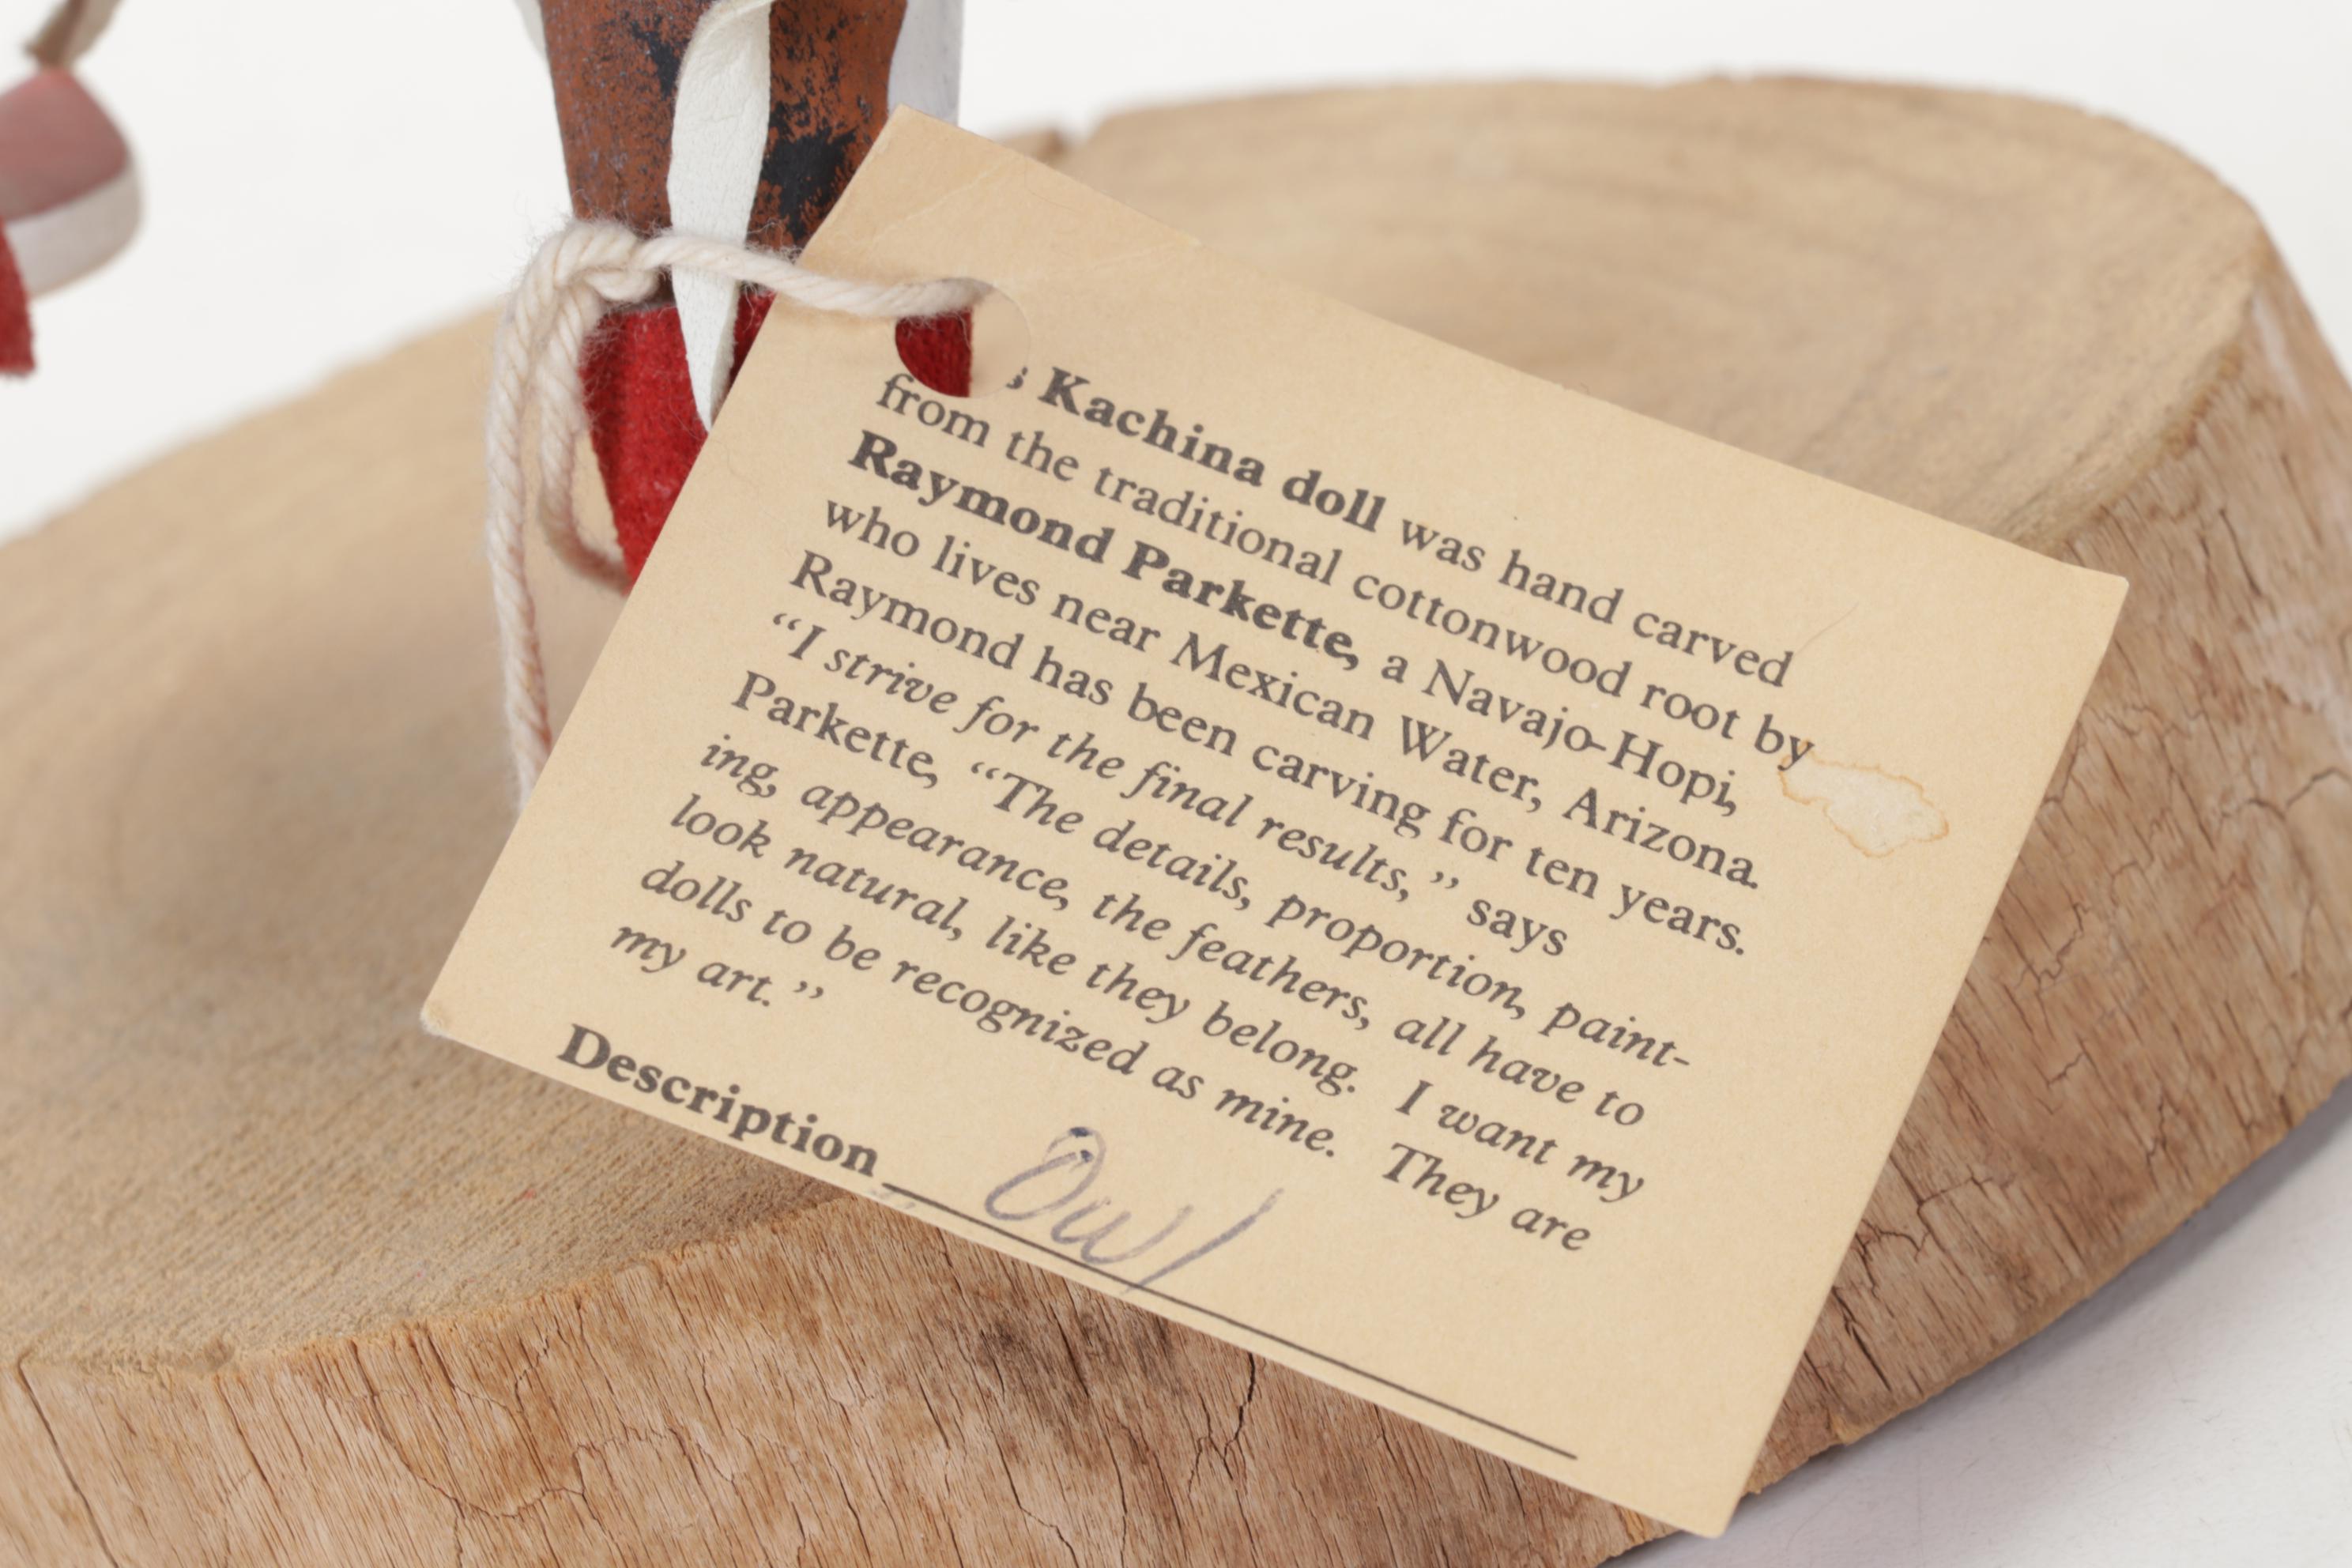 Kachina doll was hand carved
from the traditional cottonwood root by
Raymond Parkette, a Navajo-Hopi,
who lives near Mexican Water, Arizona.
Raymond has been carving for ten years.
“I strive for the final results,” says
Parkette, “The details, proportion, paint-
ing, appearance, the feathers, all have to
look natural, like they belong. I want my
dolls to be recognized as mine. They are
my art.”
Description Owl